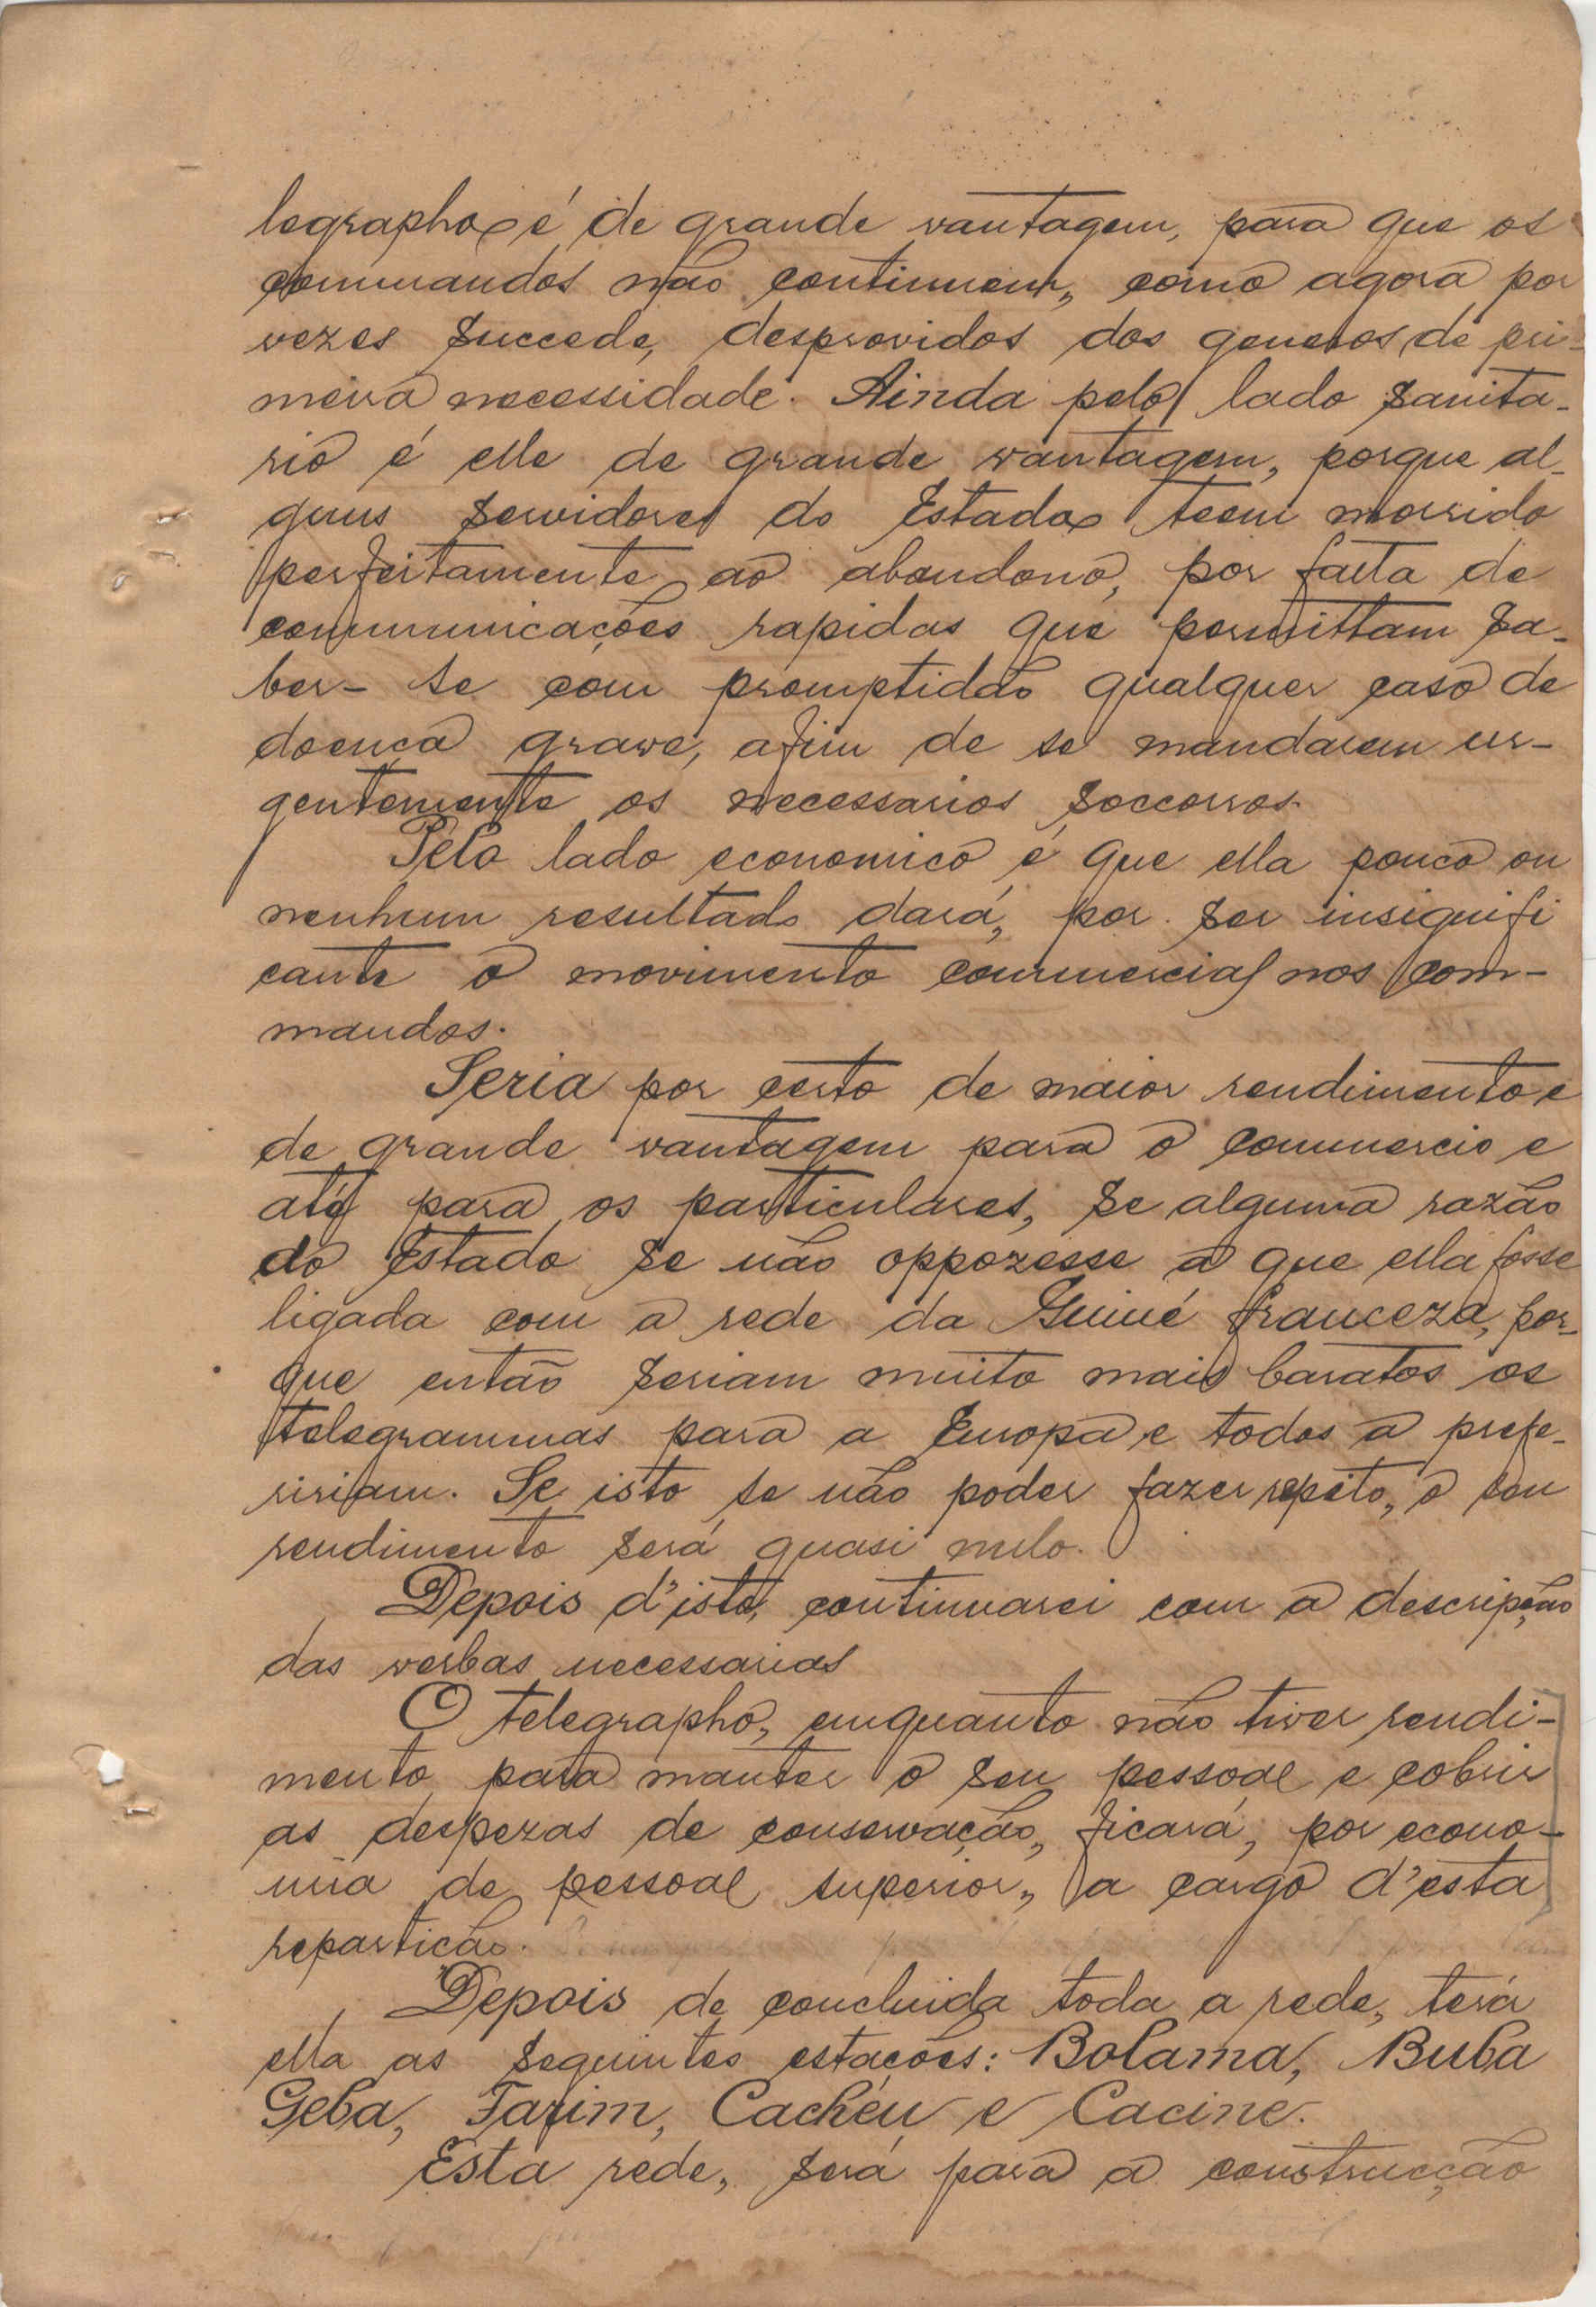 legrapho é de grande vantagem, para que os
commandos não continuem, como agora por
vezes succede, desprovidos dos generos de pri-
meira necessidade. Ainda pelo lado sanita-
rio é elle de grande vantagem, porque al-
guns servidores do Estado teem morrido
perfeitamente ao abandono, por falta de
communicações rapidas que permittam sa-
ber-se com promptidão qualquer caso de
doença grave, afim de se mandarem ur-
gentemente os necessarios soccorros.
Pelo lado economico é que ella pouco ou
nenhum resultado dará, por ser insignifi
cante o movimento commercial nos com-
mandos.
Seria por certo de maior rendimento e
de grande vantagem para o commercio e
até para os particulares, se alguma razão
do Estado se não oppozesse a que ella fosse
ligada com a rede da Guiné franceza, por-
que então seriam muito mais baratos os
telegrammas para a Europa e todos a prefe-
ririam. Se isto se não poder fazer repito, o seu
rendimento será quasi nulo.
Depois d'isto, continuarei com a descripção
das verbas necessarias
O telegrapho, emquanto não tiver rendi-
mento para manter o seu pessoal e cobrir
as despezas de conservação, ficará, por econo-
mia de pessoal superior, a cargo d'esta
repartição.
Depois de concluida toda a rede, terá
ella as seguintes estações: Bolama, Buba
Geba, Farim, Cachéu e Cacine.
Esta rede, será para a construcção